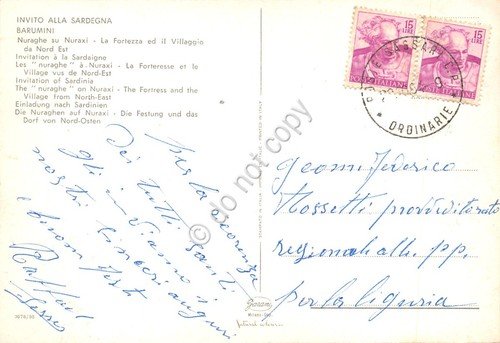 INVITO ALLA SARDEGNA
BARUMINI
Nuraghe su Nuraxi - La Fortezza ed il Villaggio
da Nord Est
Invitation à la Sardaigne
Les "nuraghe" à Nuraxi - La Forteresse et le
Village vus de Nord-Est
Invitation of Sardinia
The "nuraghe" on Nuraxi - The Fortress and the
Village from North-East
Einladung nach Sardinien
Die Nuraghen auf Nuraxi - Die Festung und das
Dorf von Nord-Osten
per la ricorrenza
Dei tutti Santi
gli inviamo i
nostri sinceri auguri
e buone feste
Raffaele
15
LIRE
15
LIRE
POSTE ITALIANE
POSTE ITALIANE
SASSARI
ORDINARIE
geom. Federico
Rossetti provveditorato
regionale alle pp.
per la liguria
do not copy
3078/95